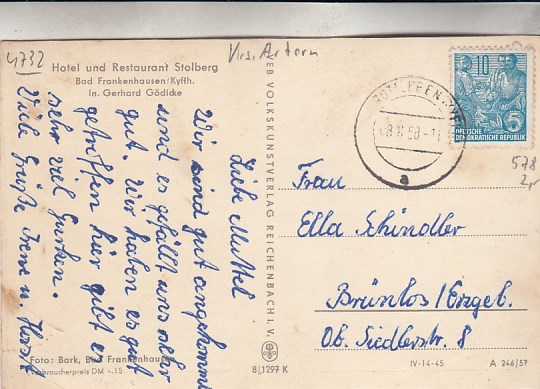 4732
Krs. Artern
Hotel und Restaurant Stolberg
Bad Frankenhausen/Kyffh.
In. Gerhard Gödicke
Liebe Muttel
Wir sind gut angekommen
und es gefällt uns sehr
gut. Wir haben es gut
getroffen hier gibt es
sehr viel Gurken.
Viele Grüße Irene u. Horst
Foto: Bark, Bad Frankenhausen
Verbraucherpreis DM -.15
VEB VOLKSKUNSTVERLAG REICHENBACH I. V.
B/1297 K
58-1
a
10
5
DEUTSCHE
DEMOKRATISCHE REPUBLIK
578
2,-
Frau
Ella Schindler
Brünlos/Erzgeb.
Ob. Siedlerstr. 8
IV-14-45
A 246/57